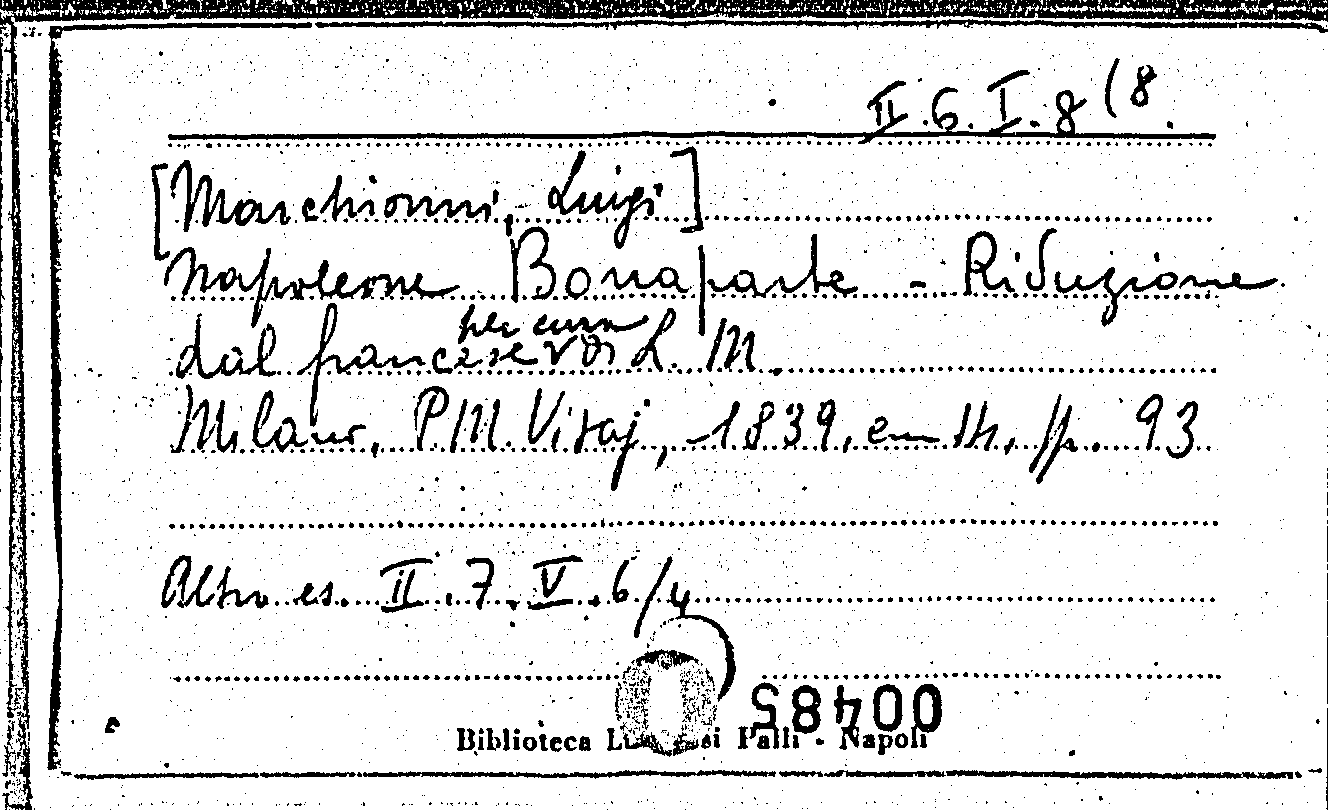 II.6.I.8(8.
[Marchionni, Luigi]
Napoleone Bonaparte - Riduzione
per cura
dal francese v di L. M.
Milano, P.M. Visaj, 1839, em 14, pp. 93
Altro es. II.7.V.6/4
00485
Biblioteca L si Palli - Napoli